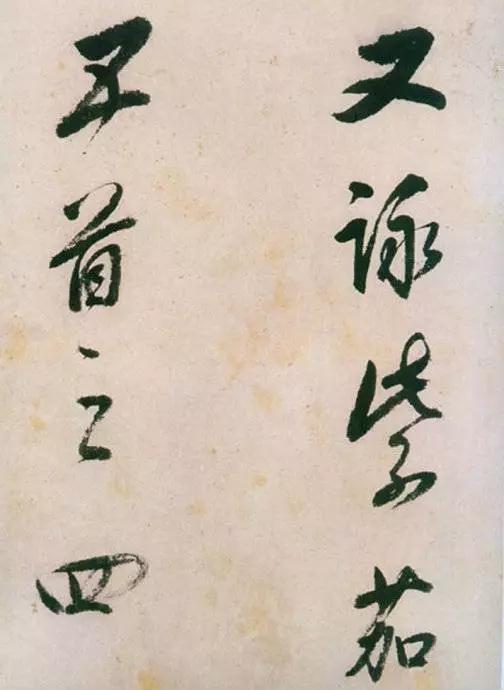 又詠紫茄
五首之四